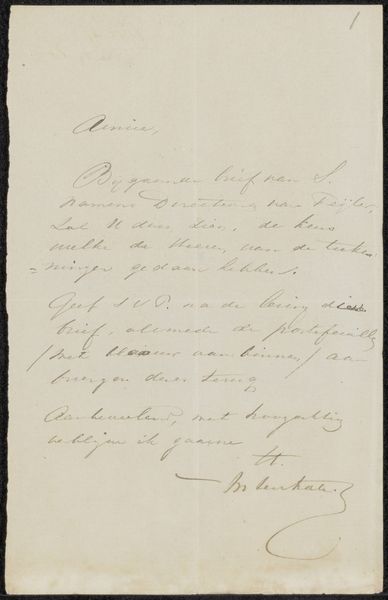 1
Amice,
Bijgaande brief van S.
namens Directeuren van Teyler,
zal U doen zien, de keus
welke de Heeren van de teeke
=ningen gedaan hebben.
Geef S V P. na de lezing dezen
brief, alsmede de portefeuille
/ met binnen / aan
brenger dezer terug
Aanbevelend, met hoogachting
verblijve ik gaarne
H.
ten Kate